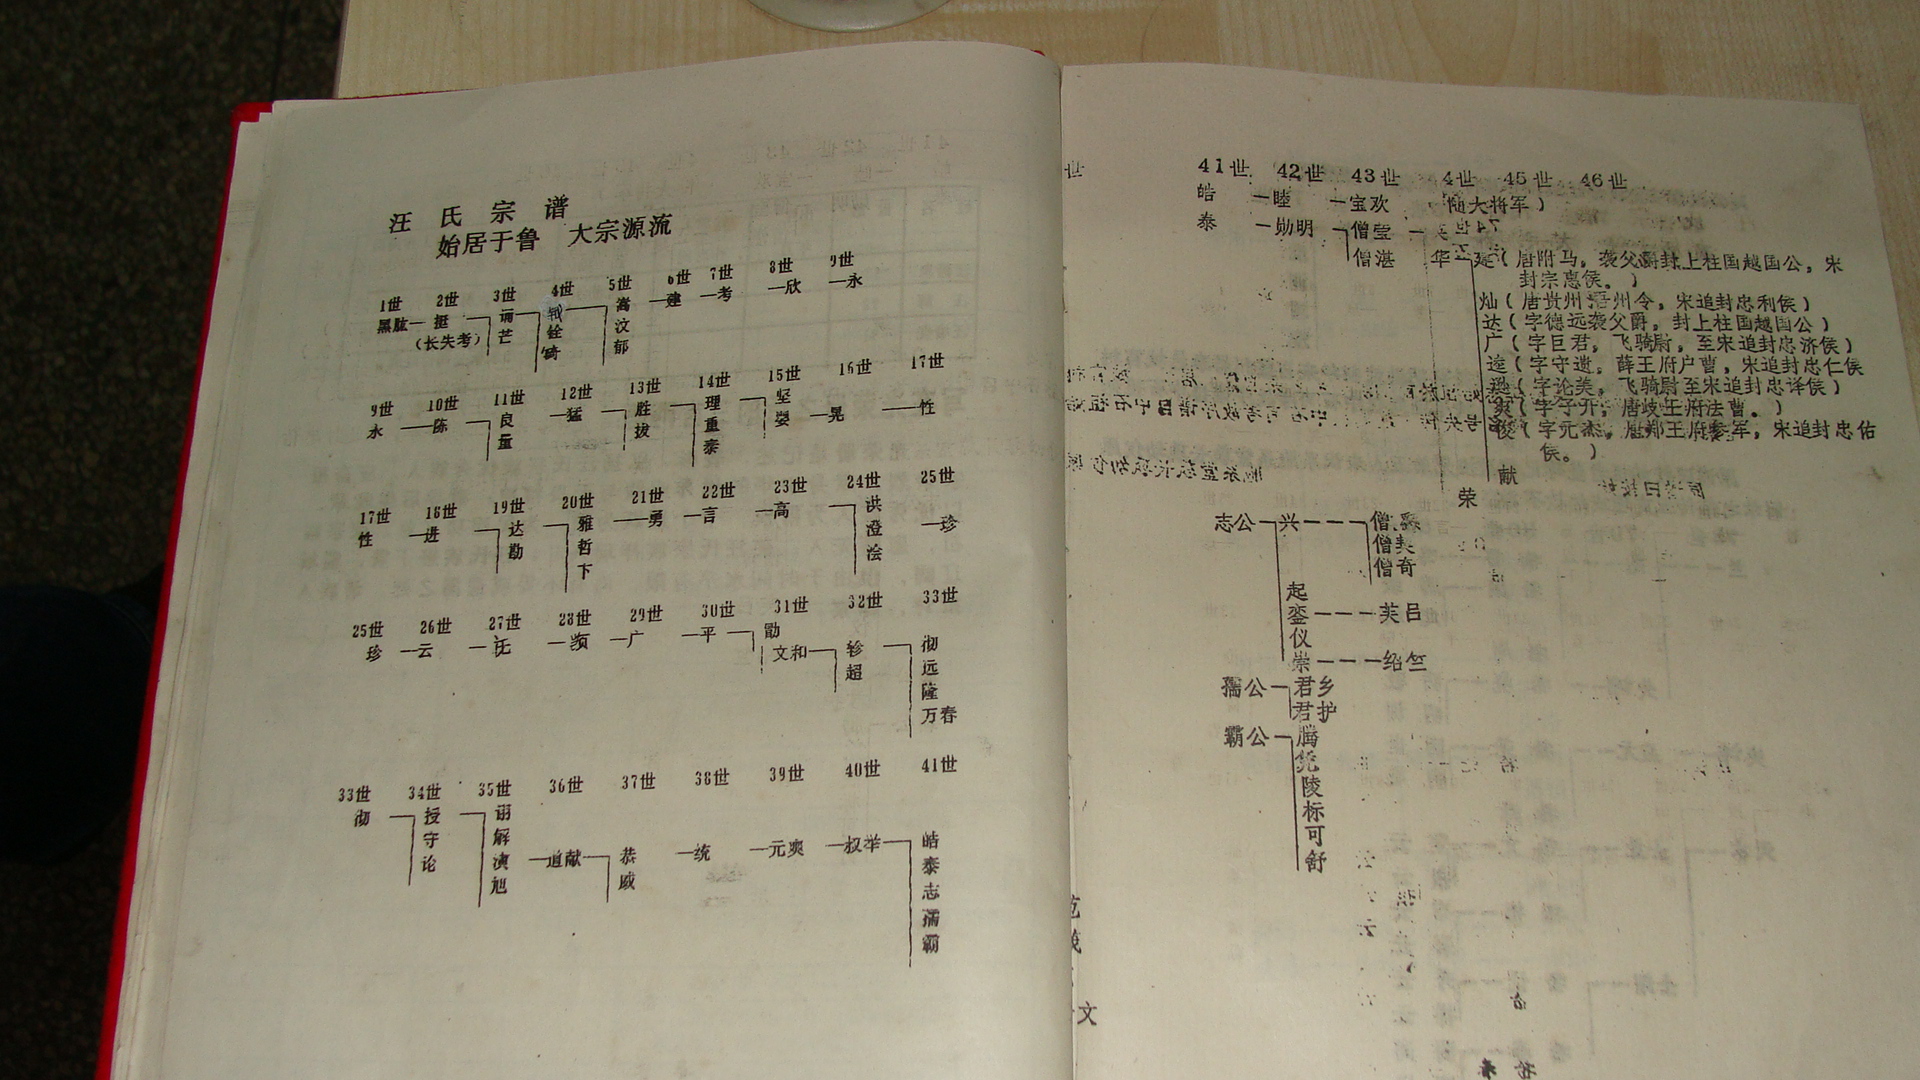 汪 氏 宗 谱
始居于鲁 大宗源流
1世 2世 3世 4世 5世 6世 7世 8世 9世
黑肱 挺 诵 钺 嵩 建 考 欣 永
(长失考) 芒 铨 汶
锜 郁
9世 10世 11世 12世 13世 14世 15世 16世 17世
永 陈 良 猛 胜 理 坚 晃 性
量 拔 重 婴
泰
17世 18世 19世 20世 21世 22世 23世 24世 25世
性 进 达 雅 勇 言 高 洪 珍
勘 哲 澄
下 浍
25世 26世 27世 28世 29世 30世 31世 32世 33世
珍 云 须 广 平 勖 轸 彻
文和 超 远
隆
万春
33世 34世 35世 36世 37世 38世 39世 40世 41世
彻 授 诩 道献 恭 统 元爽 权举 皓
守 解 威 泰
论 演 志
旭 孺
霸
41世 42世 43世 4世 45世 46世
皓 睦 宝欢 (随大将军)
泰 勋明 僧莹
僧湛 华 建(唐附马,袭父爵封上柱国越国公,宋
封宗惠侯。)
灿(唐贵州 州令,宋追封忠利侯)
达(字德远袭父爵,封上柱国越国公)
广(字巨君,飞骑尉,至宋追封忠济侯)
逵(字守遗,薛王府户曹,宋追封忠仁侯
(字论美,飞骑尉至宋追封忠译侯)
爽(字子开,唐歧王府法曹。)
俊(字元杰,唐郑王府参军,宋追封忠佑
侯。)
献
荣
志公 兴 僧
僧
僧奇
起
銮 芙吕
仪
崇 绍竺
孺公 君乡
君护
霸公 腾
凭
陵
标
可
舒
文